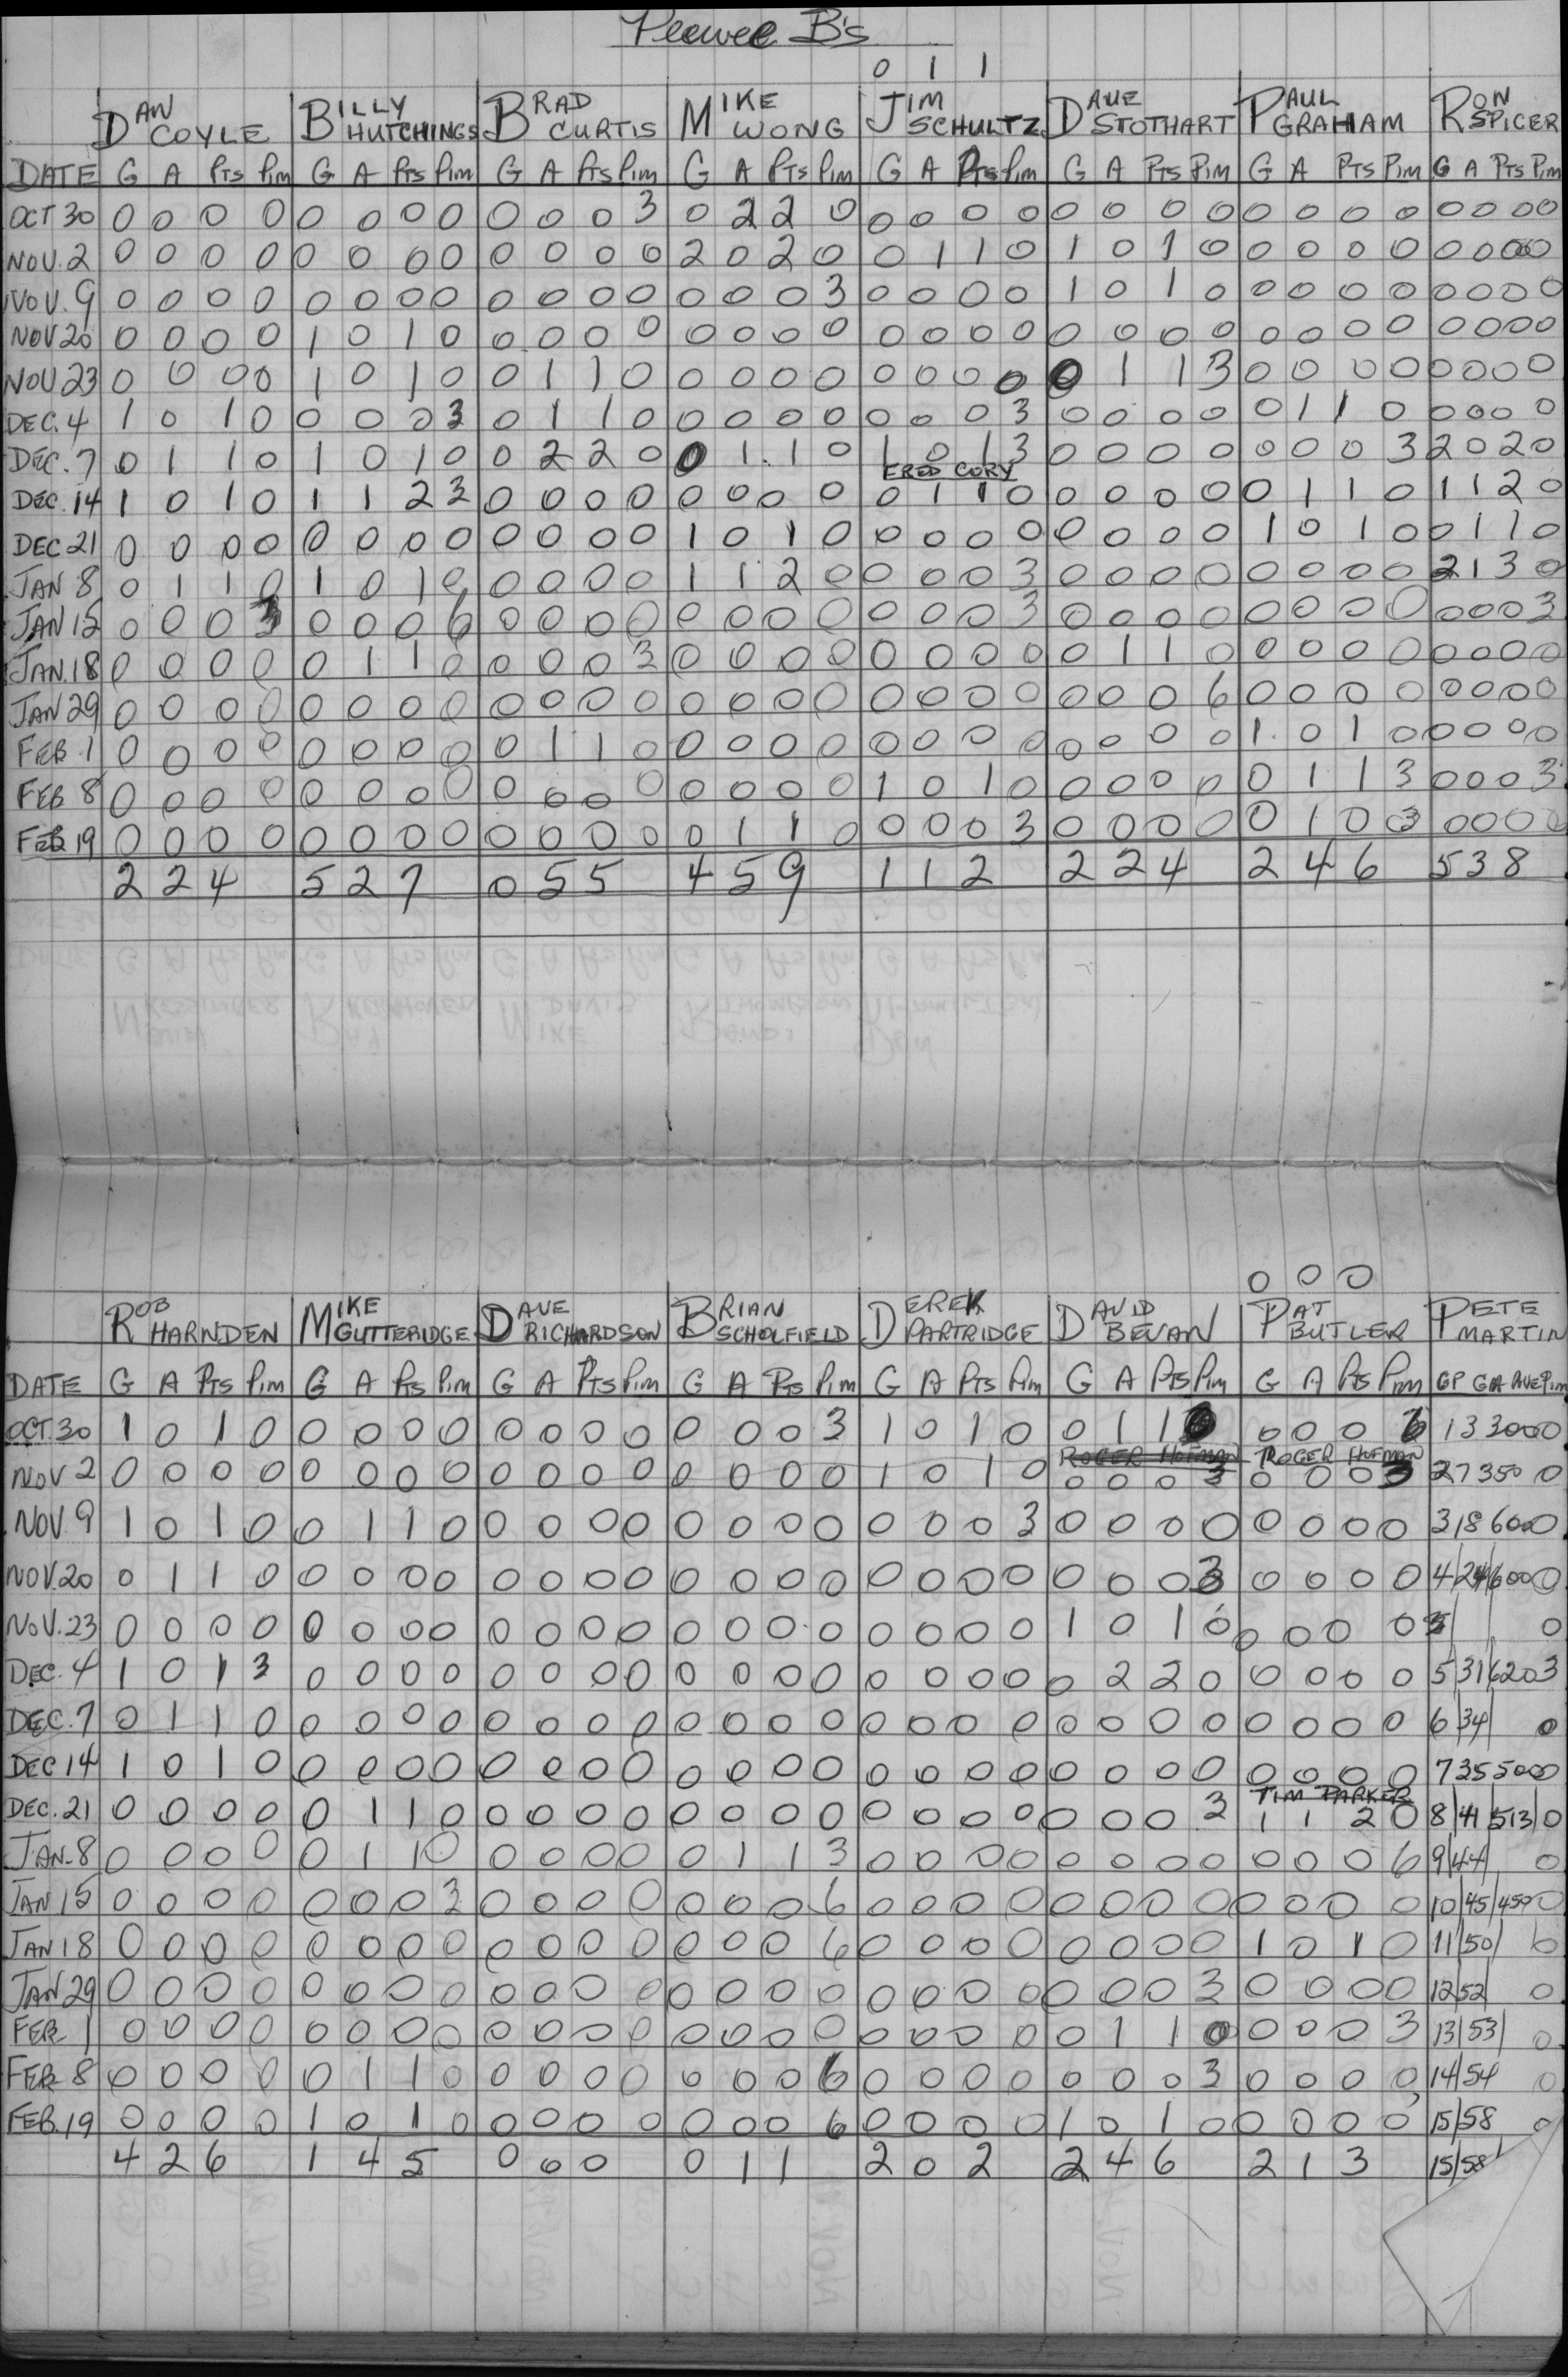 Peewee B's
0 1 1
DAN COYLE BILLY HUTCHINGS BRAD CURTIS MIKE WONG JIM SCHULTZ DAVE STOTHART PAUL GRAHAM RON SPICER
DATE G A Pts Pim G A Pts Pim G A Pts Pim G A Pts Pim G A Pts Pim G A Pts Pim G A Pts Pim G A Pts Pim
OCT 30 0 0 0 0 0 0 0 0 0 0 0 3 0 2 2 0 0 0 0 0 0 0 0 0 0 0 0 0 0 0 0 0
NOV. 2 0 0 0 0 0 0 0 0 0 0 0 0 2 0 2 0 0 1 1 0 1 0 1 0 0 0 0 0 0 0 0 0
NOV. 9 0 0 0 0 0 0 0 0 0 0 0 0 0 0 0 3 0 0 0 0 1 0 1 0 0 0 0 0 0 0 0 0
NOV 20 0 0 0 0 1 0 1 0 0 0 0 0 0 0 0 0 0 0 0 0 0 0 0 0 0 0 0 0 0 0 0 0
NOV 23 0 0 0 0 1 0 1 0 0 1 1 0 0 0 0 0 0 0 0 0 0 1 1 3 0 0 0 0 0 0 0 0
DEC. 4 1 0 1 0 0 0 0 3 0 1 1 0 0 0 0 0 0 0 0 3 0 0 0 0 0 1 1 0 0 0 0 0
DEC. 7 0 1 1 0 1 0 1 0 0 2 2 0 0 1 1 0 1 0 1 3 0 0 0 0 0 0 0 3 2 0 2 0
FRED CORY
DEC. 14 1 0 1 0 1 1 2 3 0 0 0 0 0 0 0 0 0 1 1 0 0 0 0 0 0 1 1 0 1 1 2 0
DEC 21 0 0 0 0 0 0 0 0 0 0 0 0 1 0 1 0 0 0 0 0 0 0 0 0 1 0 1 0 0 1 1 0
JAN 8 0 1 1 0 1 0 1 0 0 0 0 0 1 1 2 0 0 0 0 3 0 0 0 0 0 0 0 0 2 1 3 0
JAN 15 0 0 0 3 0 0 0 6 0 0 0 0 0 0 0 0 0 0 0 3 0 0 0 0 0 0 0 0 0 0 0 3
JAN. 18 0 0 0 0 0 1 1 0 0 0 0 3 0 0 0 0 0 0 0 0 0 1 1 0 0 0 0 0 0 0 0 0
JAN 29 0 0 0 0 0 0 0 0 0 0 0 0 0 0 0 0 0 0 0 0 0 0 0 6 0 0 0 0 0 0 0 0
FEB 1 0 0 0 0 0 0 0 0 0 1 1 0 0 0 0 0 0 0 0 0 0 0 0 0 1 0 1 0 0 0 0 0
FEB 8 0 0 0 0 0 0 0 0 0 0 0 0 0 0 0 0 1 0 1 0 0 0 0 0 0 1 1 3 0 0 0 3
FEB 19 0 0 0 0 0 0 0 0 0 0 0 0 0 1 1 0 0 0 0 3 0 0 0 0 0 1 0 3 0 0 0 0
2 2 4 5 2 7 0 5 5 4 5 9 1 1 2 2 2 4 2 4 6 5 3 8
0 0 0
ROB HARNDEN MIKE GUTTERIDGE DAVE RICHARDSON BRIAN SCHOLFIELD DEREK PARTRIDGE DAVID BEVAN PAT BUTLER PETE MARTIN
DATE G A Pts Pim G A Pts Pim G A Pts Pim G A Pts Pim G A Pts Pim G A Pts Pim G A Pts Pim GP GA AVE Pim
OCT. 30 1 0 1 0 0 0 0 0 0 0 0 0 0 0 0 3 1 0 1 0 0 1 1 0 0 0 0 6 1 3 3000 0
ROGER HOFMAN ROGER HOFMAN
NOV 2 0 0 0 0 0 0 0 0 0 0 0 0 0 0 0 0 1 0 1 0 0 0 0 3 0 0 0 3 2 7 350 0
NOV. 9 1 0 1 0 0 1 1 0 0 0 0 0 0 0 0 0 0 0 0 3 0 0 0 0 0 0 0 0 3 18 600 0
NOV. 20 0 1 1 0 0 0 0 0 0 0 0 0 0 0 0 0 0 0 0 0 0 0 0 3 0 0 0 0 4 24 600 0
NOV. 23 0 0 0 0 0 0 0 0 0 0 0 0 0 0 0 0 0 0 0 0 1 0 1 0 0 0 0 0 0
DEC. 4 1 0 1 3 0 0 0 0 0 0 0 0 0 0 0 0 0 0 0 0 0 2 2 0 0 0 0 0 5 31 620 3
DEC. 7 0 1 1 0 0 0 0 0 0 0 0 0 0 0 0 0 0 0 0 0 0 0 0 0 0 0 0 0 6 34 0
DEC 14 1 0 1 0 0 0 0 0 0 0 0 0 0 0 0 0 0 0 0 0 0 0 0 0 0 0 0 0 7 35 500 0
TIM PARKER
DEC. 21 0 0 0 0 0 1 1 0 0 0 0 0 0 0 0 0 0 0 0 0 0 0 0 3 1 1 2 0 8 41 513 0
JAN. 8 0 0 0 0 0 1 1 0 0 0 0 0 0 1 1 3 0 0 0 0 0 0 0 0 0 0 0 6 9 44 0
JAN 15 0 0 0 0 0 0 0 3 0 0 0 0 0 0 0 6 0 0 0 0 0 0 0 0 0 0 0 0 10 45 450 0
JAN 18 0 0 0 0 0 0 0 0 0 0 0 0 0 0 0 6 0 0 0 0 0 0 0 0 1 0 1 0 11 50 0
JAN 29 0 0 0 0 0 0 0 0 0 0 0 0 0 0 0 0 0 0 0 0 0 0 0 3 0 0 0 0 12 52 0
FEB 1 0 0 0 0 0 0 0 0 0 0 0 0 0 0 0 0 0 0 0 0 0 1 1 0 0 0 0 3 13 53 0
FEB 8 0 0 0 0 0 1 1 0 0 0 0 0 0 0 0 6 0 0 0 0 0 0 0 3 0 0 0 0 14 54 0
FEB. 19 0 0 0 0 1 0 1 0 0 0 0 0 0 0 0 6 0 0 0 0 1 0 1 0 0 0 0 0 15 58 0
4 2 6 1 4 5 0 0 0 0 1 1 2 0 2 2 4 6 2 1 3 15/58